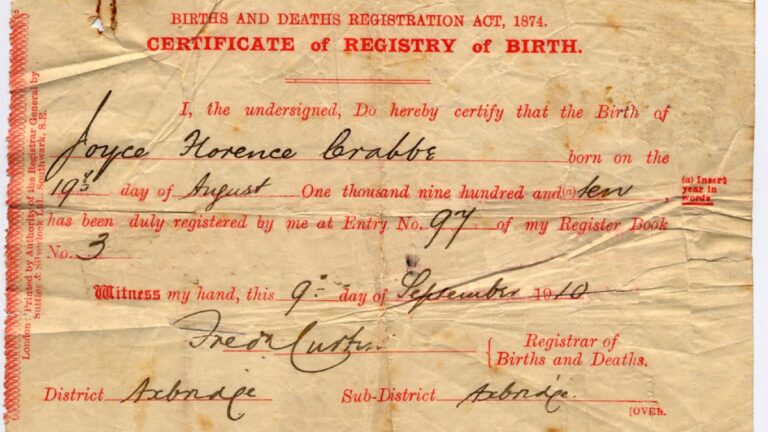 BIRTHS AND DEATHS REGISTRATION ACT, 1874.
CERTIFICATE of REGISTRY of BIRTH.
I, the undersigned, Do hereby certify that the Birth of
Joyce Florence Crabbe born on the
19th day of August One thousand nine hundred and (a) ten,
(a) Insert
year in
words.
has been duly registered by me at Entry No. 97 of my Register Book
No. 3
Witness my hand, this 9th day of September 1910
Fredk Curtis
Registrar of
Births and Deaths.
District Axbridge Sub-District Axbridge.
[OVER.
London: Printed by Authority of the Registrar General by
Suttley & Silverlock Ltd. Southwark, S.E.